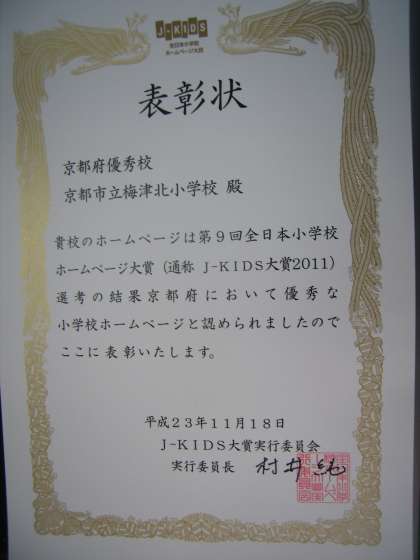 J-KIDS
全日本小学校
ホームページ大賞
表彰状
京都府優秀校
京都市立梅津北小学校 殿
貴校のホームページは第9回全日本小学校
ホームページ大賞（通称 J-KIDS大賞2011）
選考の結果京都府において優秀な
小学校ホームページと認められましたので
ここに表彰いたします。
平成23年11月18日
J-KIDS大賞実行委員会
実行委員長 村井純